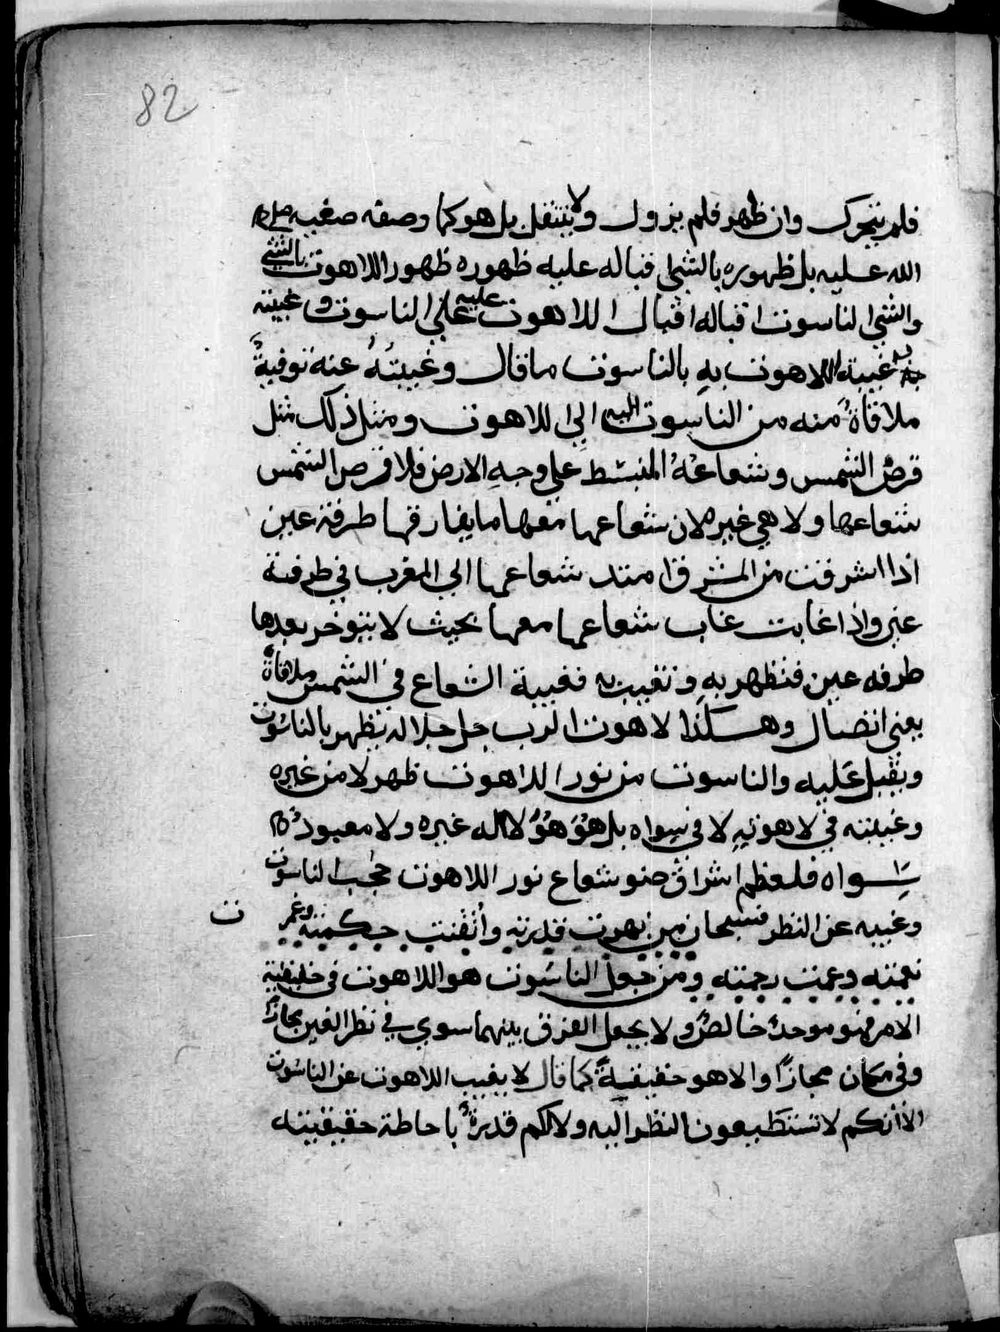 82
فلم يتحرك وان ظهر فلم يزول ولا ينتقل بل هو كما وصفه صفيه صلى
الله عليه بل ظهوره بالتجلى قباله عليه ظهوره ظهور اللاهوت بالتجلي
والتجلى لناسوت اقباله اقبال اللاهوت عليه على الناسوت وغيبته
غيبة اللاهوت به بالناسوت ما قال وغيبته عنه توفية
ملاقاة منه من الناسوت الى اللاهوت ومثل ذلك مثل
قرص الشمس وشعاعه المنبسط على وجه الارض فلا قرص الشمس
شعاعها ولا هي غيره لان شعاعها معها ما يفارقها طرفة عين
اذا اشرقت من المشرق امتد شعاعها الى المغرب في طرفة
عين واذا غابت غاب شعاعها معها بحيث لا يتوخر بعدها
طرفه عين فتظهر به وتغيب به فغيبة الشعاع في الشمس ملاقاة
يعني اتصال وهكذا لاهوت الرب جل جلاله يظهر بالناسوت
ويقبل عليه والناسوت من نور اللاهوت ظهر لا من غيره
وغيبته في لاهوتيه لا في سواه بل هو هو لا اله غيره ولا معبود
سواه فلعظم اشراق ضو شعاع نور اللاهوت حجب الناسوت
وغيبه عن النظر فسبحان من بهرت قدرته وأتقنت حكمته وغمر ت
نعمته وعمت رحمته ومن جعل الناسوت هو اللاهوت في حقيقية
الامر فهو موحد خالص ولا يجعل الفرق بينهما سوي في نظر العين مجازا
وفي مكان مجازا والا هو حقيقية كما قال لا يغيب اللاهوت عن الناسوت
الا أنكم لا تستطيعون النظر اليه ولا لكم قدرة با حاطة حقيقيته